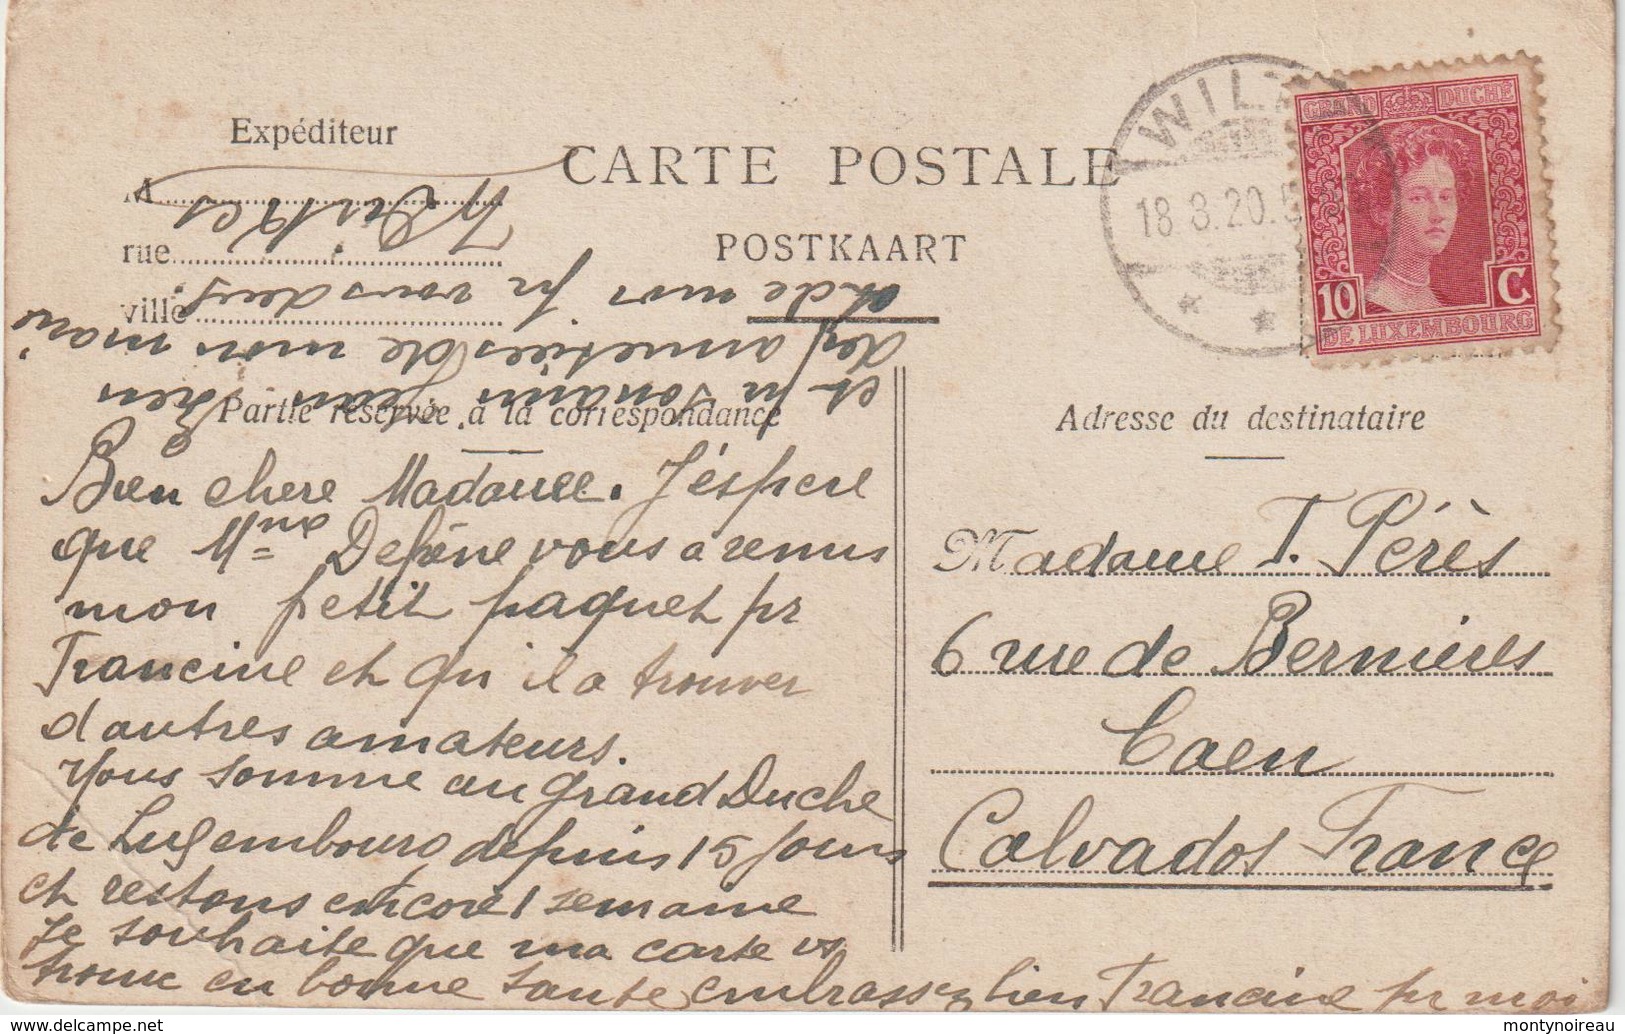 Expéditeur
M
rue
ville
CARTE POSTALE
POSTKAART
WIL
18.3.20.5
GRAND DUCHÉ
10 C
DE LUXEMBOURG
Partie réservée à la correspondance
Adresse du destinataire
Bien chere Madame. J'éspere
que Mme Defêne vous a remis
mon petit paquet pr
Francine et qu'il a trouver
d'autres amateurs.
Nous somme au Grand Duche
de Luxembourg depuis 15 jours
et restons encore 1 semaine
Je souhaite que ma carte vs
trouve en bonne sante, embrassez bien Francine pr moi
et
des amitiées de mon mari
et de moi pr vous deux
Madame T. Pérès
6 rue de Bernières
Caen
Calvados France
delcampe.net
montynoireau